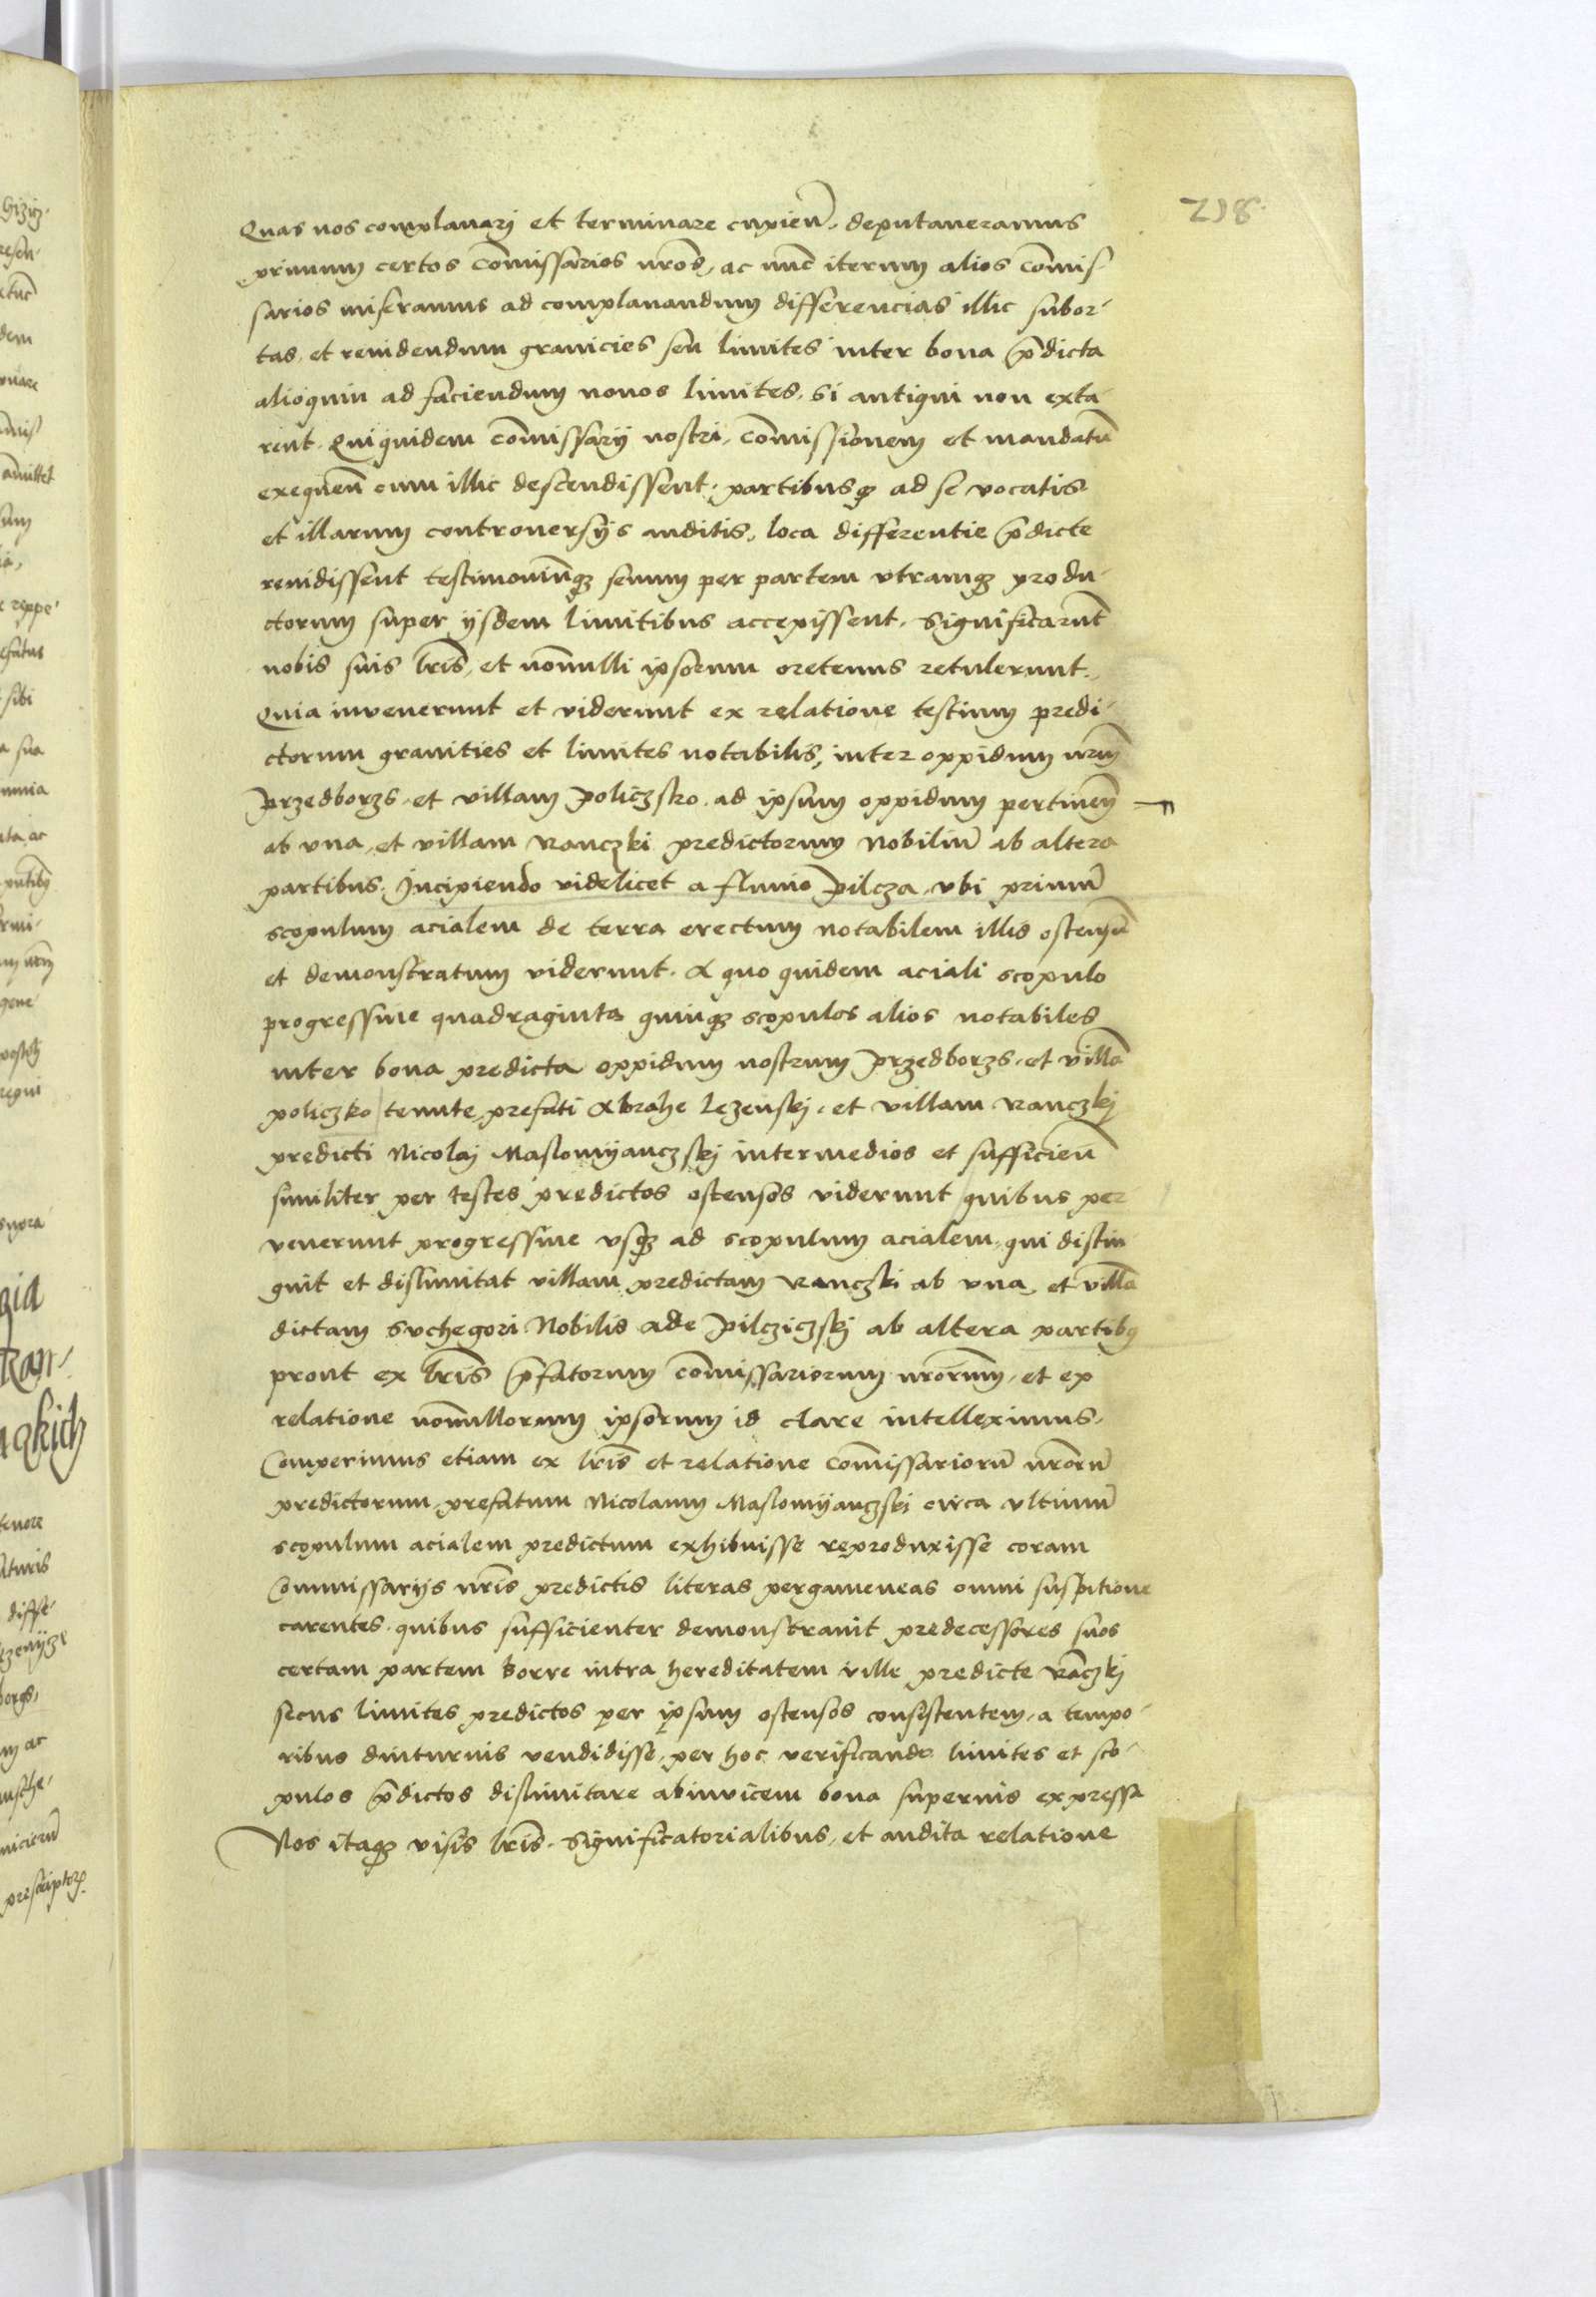 218.
Quas nos complanarj et terminare cupien̄. deputaueramus
primum certos com̄issarios nr̄os, ac nūc iterum alios com̄is-
sarios miseramus ad complanandum differencias illic subor-
tas, et reuidendum granicies seu limites inter bona p̄dicta
alioquin ad faciendum nouos limites, si antiqui non exta-
rent. Quiquidem com̄issarij nostri, com̄issionem et mandatū
exequen̄ cum illic descendissent, partibusq3 ad se vocatis
et illarum controuersijs auditis, loca differentie p̄dicte
reuidissent testimoniūq3 senum per partem vtramq3 produ-
ctorum super ijsdem limitibus accepissent. Significarūt
nobis suis lr̄is, et non̄ulli ipsorum oretenus retulerunt.
Quia invenerunt et viderunt ex relatione testium predi-
ctorum granities et limites notabilis, inter oppidum nr̄m
Przedborzs, et villam Policzsko, ad ipsum oppidum pertinen̄
ab vna, et villam Ranczki predictorum Nobiliū ab altera
partibus. Incipiendo videlicet a fluuio Pilcza, vbi primū
scopulum acialem de terra erectum notabilem illis ostensū
et demonstratum viderunt. A quo quidem aciali scopulo
progressiue quadraginta quinq3 scopulos alios notabiles
inter bona predicta oppidum nostrum Przedborzs, et villā
Policzko tenute, prefati Abrahe Lezenskj, et villam Ranczkj
predicti Nicolaj Maslomijanczskj intermedios et sufficien̄
similiter per testes predictos ostensos viderunt quibus per-
venerunt progressiue vsq3 ad scopulum acialem, qui distin-
guit et dislimitat villam predictam Ranczki ab vna, et villā
dictam Suchegori Nobilis Ade Pilcziczskj ab altera partib9
prout ex lr̄is p̄fatorum com̄issariorum nr̄orum, et ex
relatione non̄ullorum ipsorum id clare intelleximus.
Comperimus etiam ex lr̄is et relatione com̄issariorū nr̄orū
predictorum, prefatum Nicolaum Maslomijanczski circa vltimū
scopulum acialem predictum exhibuisse reproduxisse coram
Commissarijs nr̄is predictis literas pergameneas omni suspitione
carentes, quibus sufficienter demonstrauit predecessores suos
certam partem borre intra hereditatem ville predicte Rāczkj
secus limites predictos per ipsum ostensos consistentem, a tempo-
ribus diuturnis vendidisse, per hoc verificando limites et sco-
pulos p̄dictos dislimitare abinvicem bona superius expressa
Nos itaq3 visis lr̄is significatorialibus, et audita relatione